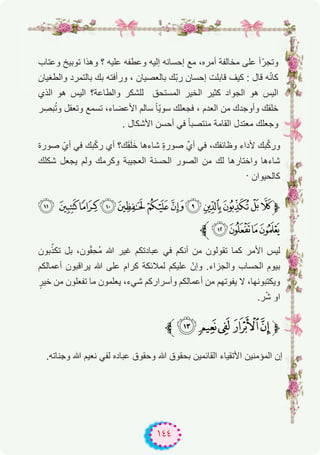 وتجرّأ على مخالفة أمره، مع إحسانه إليه وعطفه عليه ؟ وهذا توبيخ وعتاب
كأنّه قال : كيف قابلت إحسان ربّك بالعصيان ، ورأفته بك بالتمرد والطغيان
اليس هو الجواد كثير الخير المستحق للشكر والطاعة؟ اليس هو الذي
خلقك وأوجدك من العدم ، فجعلك سويّاً سالم الأعضاء، تسمع وتعقل وتُبصر
وجعلك معتدل القامة منتصباً في أحسن الأشكال .
وركّبك لأداء وظائفك، في أيّ صورةٍ شاءها خَلَقك؟ أي ركّبك في أيّ صورة
شاءها واختارها لك من الصور الحسنة العجيبة وكرمك ولم يجعل شكلك
كالحيوان .
﴿ كَلَّا بَلْ تُكَذِّبُونَ بِالدِّينِ ٩ وَإِنَّ عَلَيْكُمْ لَحَافِظِينَ ١٠ كِرَامًا كَاتِبِينَ ١١
يَعْلَمُونَ مَا تَفْعَلُونَ ١٢ ﴾
ليس الأمر كما تقولون من أنكم في عبادتكم غير الله مُحِقّون، بل تكذّبون
بيوم الحساب والجزاء. وإنّ عليكم لملائكة كرام على الله يراقبون أعمالكم
ويكتبونها، لا يفوتهم من أعمالكم وأسراركم شيء، يعلمون ما تفعلون من خيرٍ
او شر.
﴿ إِنَّ الْأَبْرَارَ لَفِي نَعِيمٍ ١٣ ﴾
إن المؤمنين الأتقياء القائمين بحقوق الله وحقوق عباده لفي نعيم الله وجناته.
١٤٤